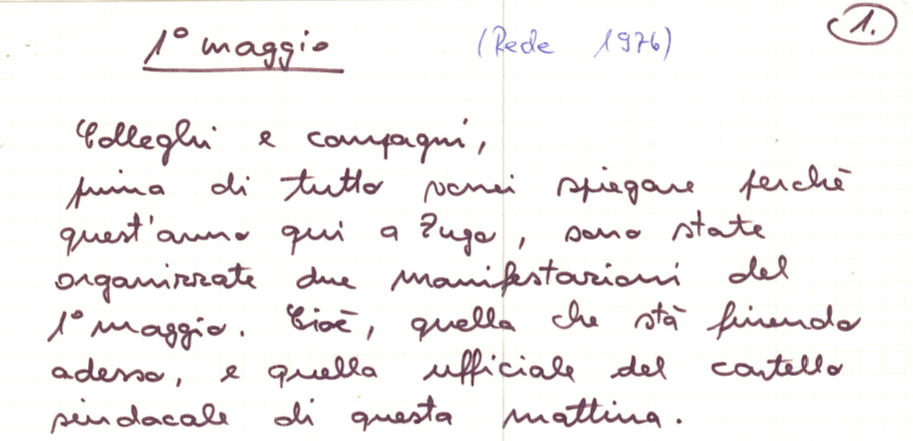 1° maggio (Rede 1976) 1.
Colleghi e compagni,
prima di tutto vorrei spiegare perchè
quest'anno qui a Zugo, sono state
organizzate due manifestazioni del
1° maggio. Cioè, quella che stà finendo
adesso, e quella ufficiale del cartello
sindacale di questa mattina.